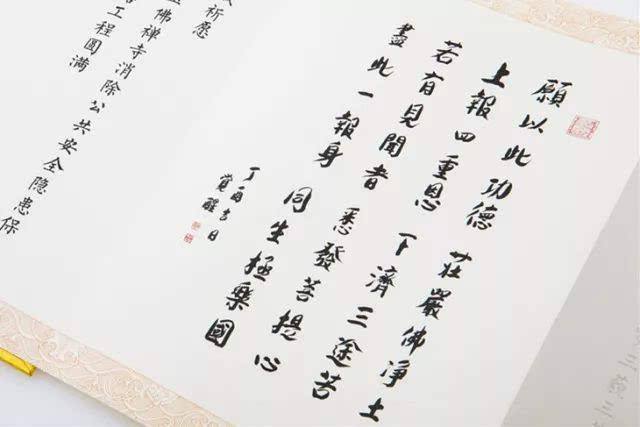 願以此功德 莊嚴佛净土
上報四重恩 下濟三途苦
若有見聞者 悉發菩提心
盡此一報身 同生極樂國
丁酉吉日
覺醒
祈愿
佛禅寺消除公共安全隐患保
工程圆满